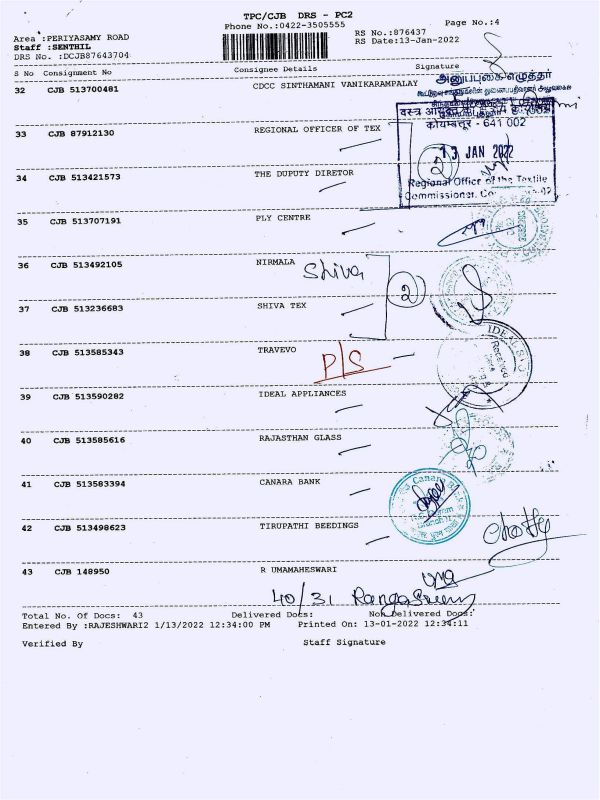 TPC/CJB DRS - PC2
Phone No.:0422-3505555
Page No.:4
Area :PERIYASAMY ROAD
Staff :SENTHIL
DRS No. :DCJB87643704
RS No.:876437
RS Date:13-Jan-2022
S No Consignment No Consignee Details Signature
32 CJB 513700481 CDCC SINTHAMANI VANIKARAMPALAY
அனுப்புகை எழுத்தர்
33 CJB 87912130 REGIONAL OFFICER OF TEX
कोयम्बत्तूर - 641 002
13 JAN 2022
2
34 CJB 513421573 THE DUPUTY DIRETOR
Regional Office of the Textile
Commissioner,
35 CJB 513707191 PLY CENTRE
36 CJB 513492105 NIRMALA
Shiva
2
37 CJB 513236683 SHIVA TEX
38 CJB 513585343 TRAVEVO
P/S
IDEAL
Received
39 CJB 513590282 IDEAL APPLIANCES
40 CJB 513585616 RAJASTHAN GLASS
41 CJB 513583394 CANARA BANK
Canara Bank
42 CJB 513498623 TIRUPATHI BEEDINGS
43 CJB 148950 R UMAMAHESWARI
40/31
Total No. of Docs: 43 Delivered Docs: Non Delivered Docs:
Entered By :RAJESHWARI2 1/13/2022 12:34:00 PM Printed On: 13-01-2022 12:34:11
Verified By Staff Signature